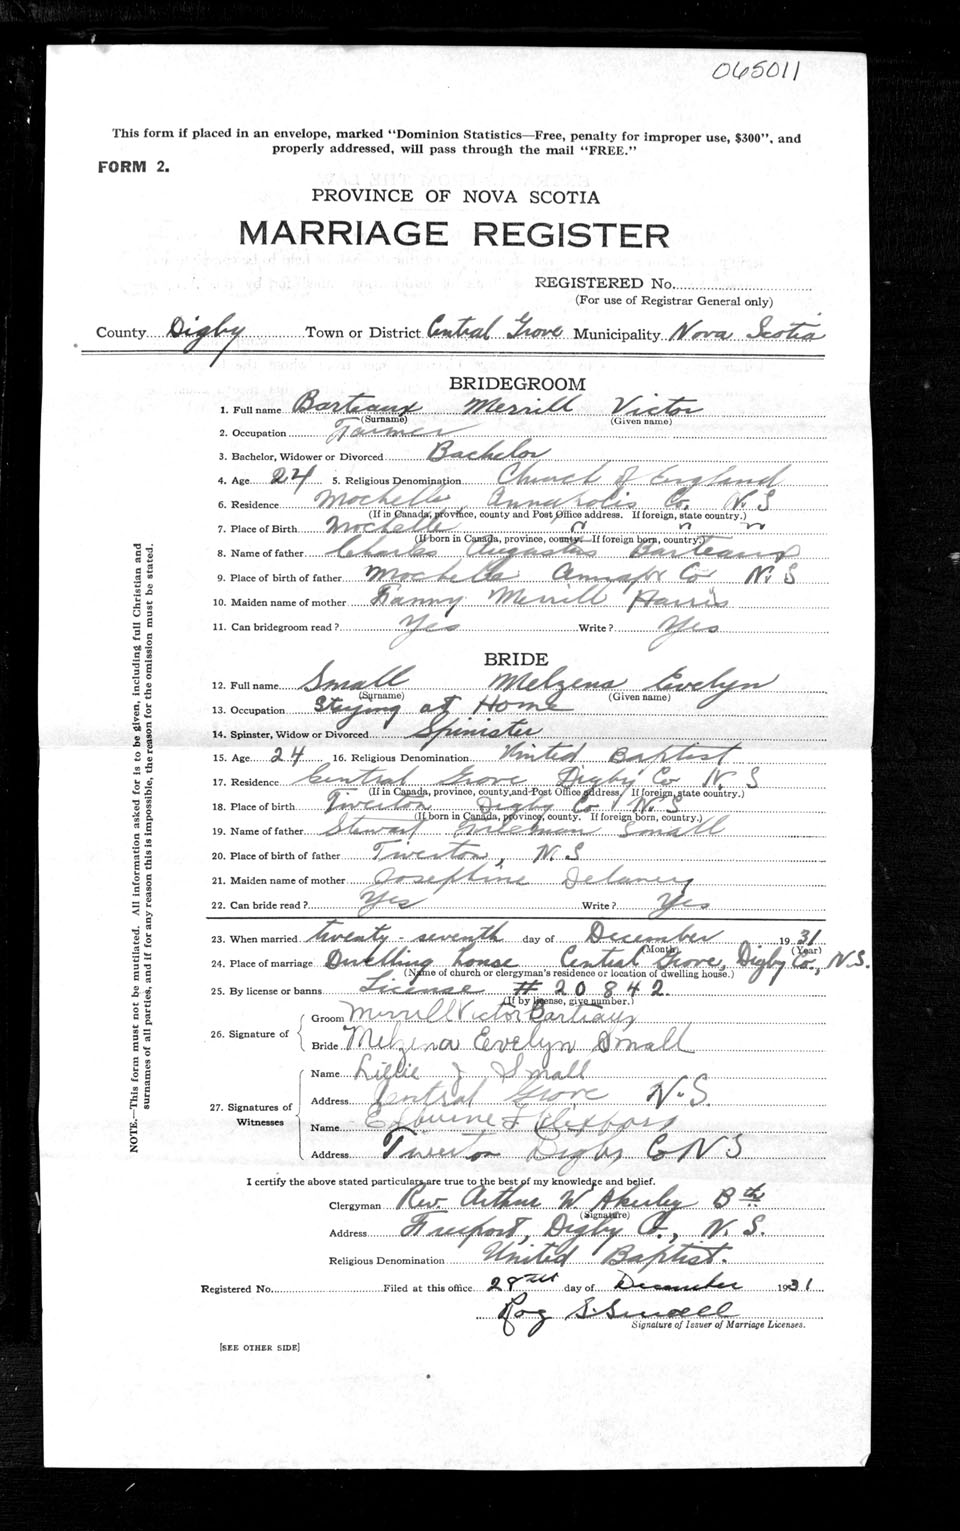 065011
This form if placed in an envelope, marked "Dominion Statistics—Free, penalty for improper use, $300", and
properly addressed, will pass through the mail "FREE."
FORM 2.
PROVINCE OF NOVA SCOTIA
MARRIAGE REGISTER
REGISTERED No.
(For use of Registrar General only)
County Digby Town or District Central Grove Municipality Nova Scotia
BRIDEGROOM
1. Full name Barteaux Merrill Victor
(Surname) (Given name)
2. Occupation Farmer
3. Bachelor, Widower or Divorced Bachelor
4. Age 24 5. Religious Denomination Church of England
6. Residence Mochelle Annapolis Co. N.S
(If in Canada, province, county and Post Office address. If foreign, state country.)
7. Place of Birth Mochelle " " "
(If born in Canada, province, county. If foreign born, country.)
8. Name of father Charles Augustus Barteaux
9. Place of birth of father Mochelle Co N.S
10. Maiden name of mother Fanny Merrill Harris
11. Can bridegroom read? Yes Write? Yes
BRIDE
12. Full name Small Melzena Evelyn
(Surname) (Given name)
13. Occupation Staying at Home
14. Spinster, Widow or Divorced Spinister
15. Age 24 16. Religious Denomination United Baptist
17. Residence Central Grove Digby Co N.S
(If in Canada, province, county, and Post Office address. If foreign, state country.)
18. Place of birth Tiverton Digby Co N.S
(If born in Canada, province, county. If foreign born, country.)
19. Name of father Small
20. Place of birth of father Tiverton, N.S
21. Maiden name of mother Josephine Delaney
22. Can bride read? Yes Write? Yes
23. When married twenty-seventh day of December 1931
(Month) (Year)
24. Place of marriage Dwelling house Central Grove, Digby Co., N.S.
(Name of church or clergyman's residence or location of dwelling house.)
25. By license or banns License # 20842.
(If by license, give number.)
26. Signature of
Groom Merrill Victor Barteaux
Bride Melzena Evelyn Small
27. Signatures of Witnesses
Name Lillie J Small
Address Central Grove N.S.
Name
Address Tiverton Digby Co N S
I certify the above stated particulars are true to the best of my knowledge and belief.
Clergyman Rev. Arthur W. Akerley Bth
(Signature)
Address Freeport, Digby Co., N.S.
Religious Denomination United Baptist.
Registered No. Filed at this office 28 day of December 1931
Signature of Issuer of Marriage Licenses.
[SEE OTHER SIDE]
NOTE.—This form must not be mutilated. All information asked for is to be given, including full Christian and
surnames of all parties, and if for any reason this is impossible, the reason for the omission must be stated.